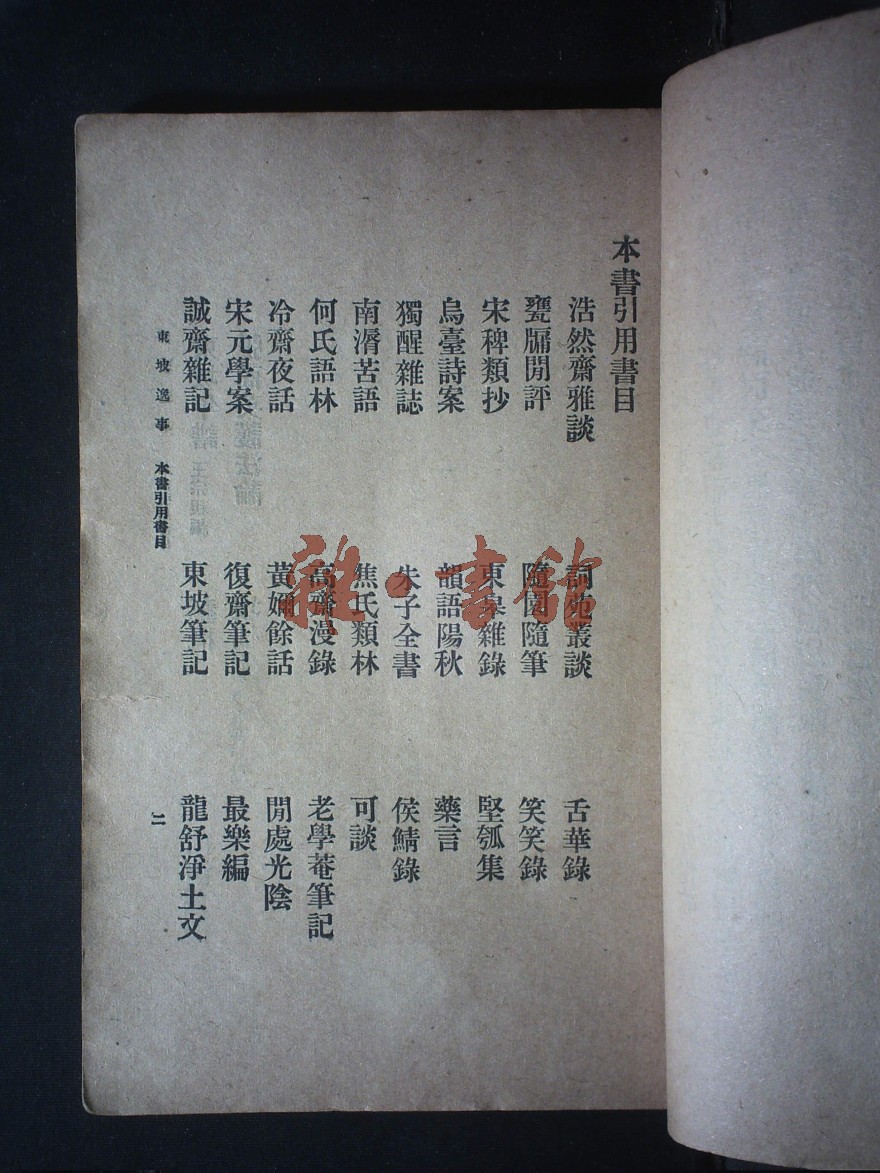 本書引用書目
浩然齋雅談 詞苑叢談 舌華錄
甕牖閒評 隨園隨筆 笑笑錄
宋稗類抄 東皋雜錄 堅瓠集
烏臺詩案 韻語陽秋 藥言
獨醒雜誌 朱子全書 侯鯖錄
南濱苦語 焦氏類林 可談
何氏語林 高齋漫錄 老學菴筆記
冷齋夜話 黃嬭餘話 閒處光陰
宋元學案 復齋筆記 最樂編
誠齋雜記 東坡筆記 龍舒淨土文
東坡逸事 本書引用書目 二
雜·書館